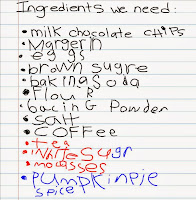 Ingredients we need:
• milk chocolate CHIPS
• Margerin
• eggs
• brown sugre
• baking soda
• Flour
• bacing Powder
• salt
• COFFee
• tea
• white sugr
• molasses
• PUMPKin Pie
spice